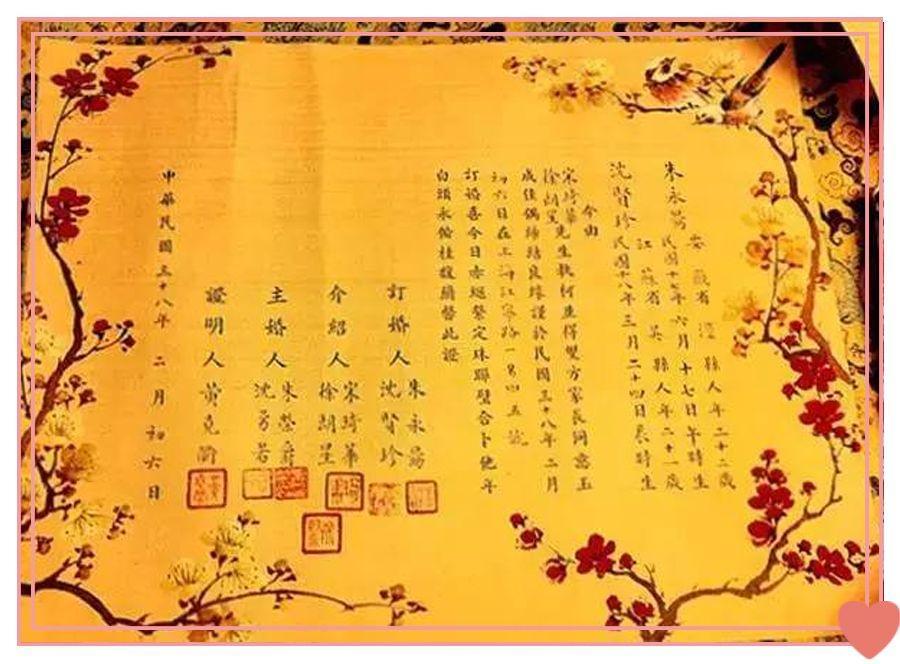 朱永昜
安徽省涇縣人年二十二歲
民國十七年六月十七日午時生
沈賢珍
江蘇省吳縣人年二十一歲
民國十八年三月二十四日辰時生
今由
宋琦華
徐胡星
先生執柯並得雙方家長同意玉
成佳偶締結良緣謹於民國三十八年二月
初六日在上海江寧路一百四五號
訂婚喜今日赤繩繫定珠聯璧合卜他年
白頭永偕桂馥蘭馨此證
訂婚人
朱永昜
沈賢珍
介紹人
宋琦華
徐胡星
主婚人
朱
沈勇若
證明人
黃克
中華民國三十八年二月初六日